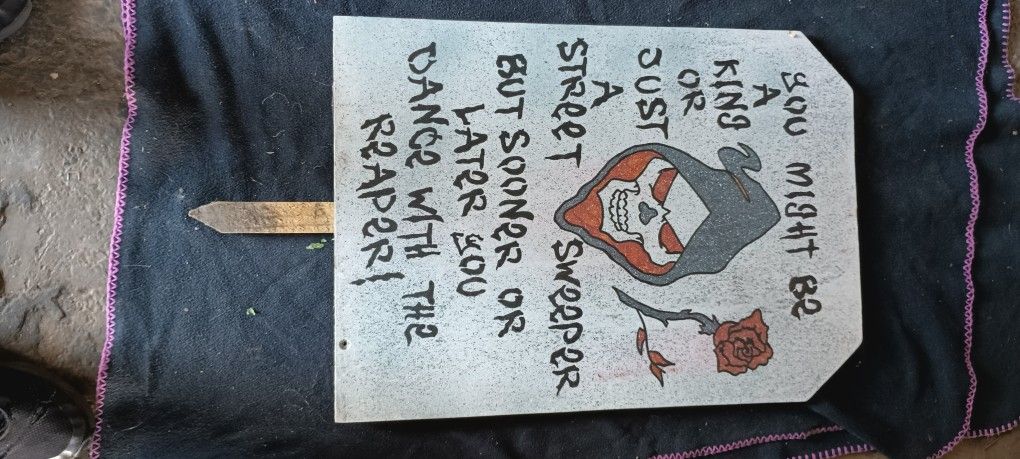 YOU MIGHT BE
A
KING
OR
JUST
A
STREET SWEEPER
BUT SOONER OR
LATER YOU
DANCE WITH THE
REAPER!